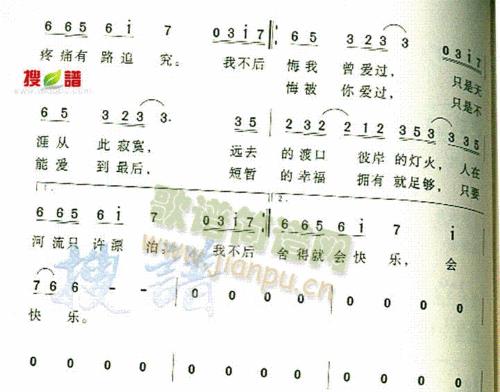 6 6 5 6 i 7 0 3 i 7 6 6 5 3 2 3 3 0 3 i 7
疼痛有路追究。 我不后 悔我 曾爱过， 只是天
搜谱 悔被 你爱过， 只是不
6 5 3 2 3 3 6 5 2 3 2 2 1 2 3 5 3 3 5 3
涯从 此寂寞， 远去 的渡口 彼岸的灯火， 人在
能爱 到最后， 短暂 的幸福 拥有就足够， 只要
1. 2.
6 6 5 6 i 7 0 3 i 7 6 6 5 6 i 7 i
河流只许漂 泊。 我不后 舍得就会快乐， 会
歌谱简谱网
www.jianpu.cn
搜谱
7 6 6 - - 0 0 0 0 0 0 0 0
快乐。
0 0 0 0 0 0 0 0 0 0 0